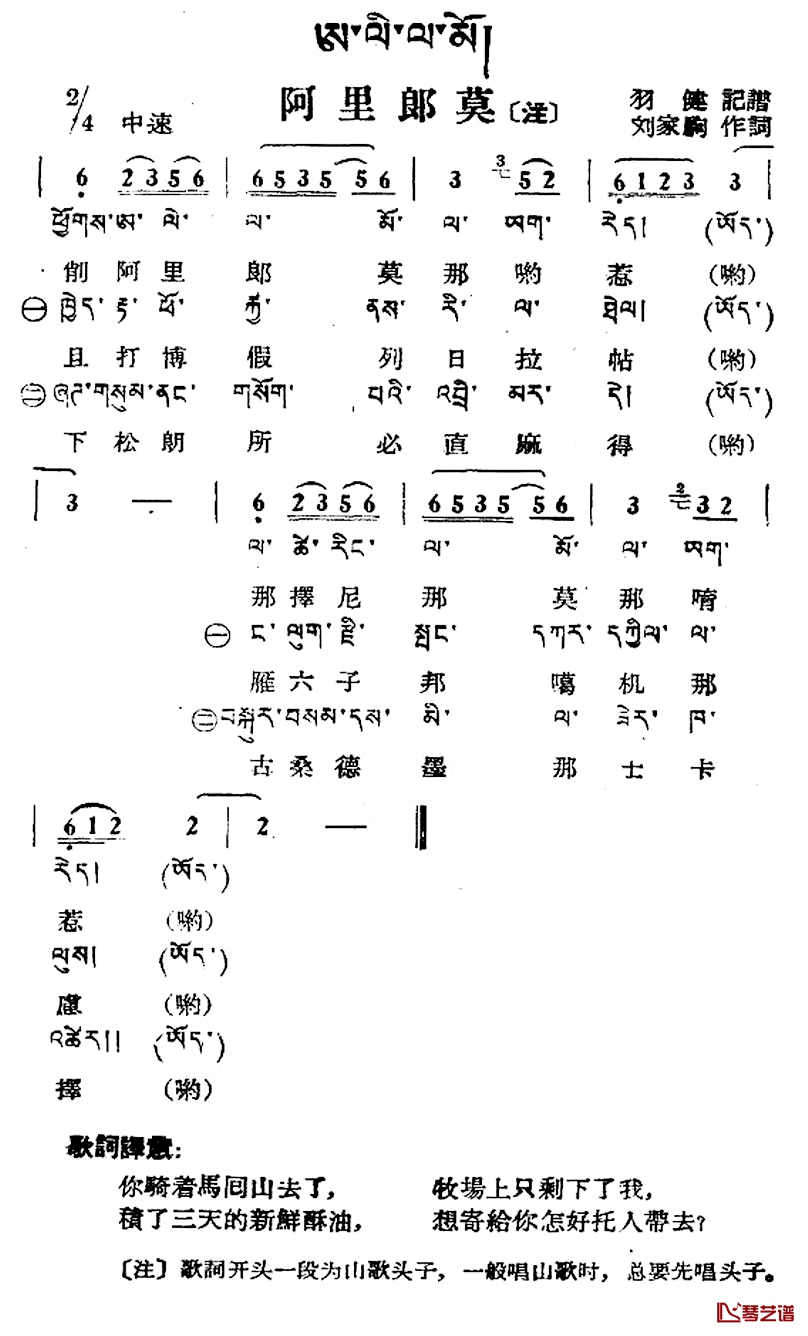 ཨ་ལི་ལ་མོ།
阿里郎莫〔注〕
2/4 中速
羽健 記譜
刘家駒 作詞
6 2356 | 6535 56 | 3 52 | 6123 3 |
ཕྱོགས་ཨ་ལེ་ ལ་ མོ་ ལ་ ཨག་ རེད། (ཨོད་)
削阿里 郎 莫 那 喲 惹 (喲)
㊀ ཁྱེད་ རྟ་ ཕོ་ རྐྱ་ ནས་ རི་ ལ་ ཐེལ། (ཨོད་)
且打博 假 列 日 拉 帖 (喲)
㊁ ཞག་གསུམ་ནང་ གསོག་ པའི་ འབྲི་ མར་ དེ། (ཨོད་)
下松朗 所 必 直 麻 得 (喲)
3 — | 6 2356 | 6535 56 | 3 32 |
ལ་ ཚེ་ རིང་ ལ་ མོ་ ལ་ ཨག་
那擇尼 那 莫 那 唷
㊀ ང་ ལུག་རྫི་ སྤང་ དཀར་ དཀྱིལ་ ལ་
雁六子 邦 噶 机 那
㊁ བསྐུར་བསམ་དས་ མི་ ལ་ ཟེར་ ཁ་
古桑德 墨 那 士 卡
612 2 | 2 —
རེད། (ཨོད་)
惹 (喲)
ལུས། (ཨོད་)
慮 (喲)
འཚེར།། (ཨོད་)
擇 (喲)
歌詞譯意:
你騎着馬回山去了, 牧場上只剩下了我,
積了三天的新鮮酥油, 想寄給你怎好托人帶去?
〔注〕歌詞开头一段为山歌头子, 一般唱山歌时, 总要先唱头子。
琴艺谱